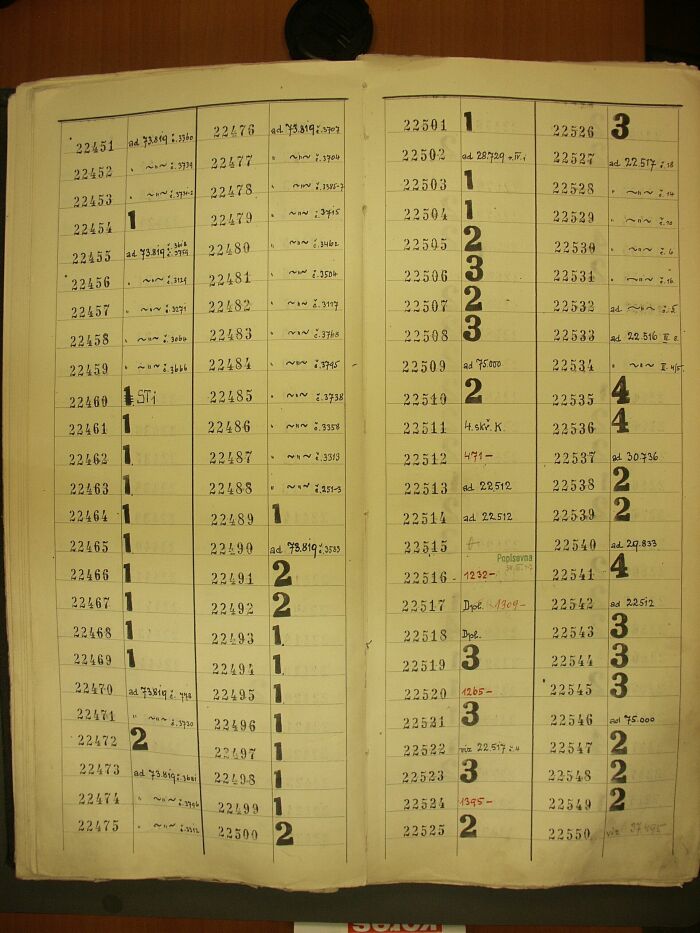 22451 ad 73.819 č.3760
22452 " ~"~ č.3739
22453 " ~"~ č.3731-2
22454 1
22455 ad 73.819 č.3759
22456 " ~"~ č.3129
22457 " ~"~ č.3271
22458 " ~"~ č.3064
22459 " ~"~ č.3666
22460 1 STi
22461 1
22462 1
22463 1
22464 1
22465 1
22466 1
22467 1
22468 1
22469 1
22470 ad 73.819 č.778
22471 " ~"~ č.3730
22472 2
22473 ad 73.819 č.3681
22474 " ~"~ č.3706
22475 " ~"~ č.3312
22476 ad 73.819 č.3707
22477 " ~"~ č.3704
22478 " ~"~ č.3385-7
22479 " ~"~ č.3715
22480 " ~"~ č.3462
22481 " ~"~ č.3504
22482 " ~"~ č.3117
22483 " ~"~ č.3768
22484 " ~"~ č.3795
22485 " ~"~ č.3738
22486 " ~"~ č.3358
22487 " ~"~ č.3313
22488 " ~"~ č.251-3
22489 1
22490 ad 73.819 č.3533
22491 2
22492 2
22493 1
22494 1
22495 1
22496 1
22497 1
22498 1
22499 1
22500 2
22501 1
22502 ad 28.729
22503 1
22504 1
22505 2
22506 3
22507 2
22508 3
22509 ad 75.000
22510 2
22511 4.skř. K.
22512 471-
22513 ad 22.512
22514 ad 22.512
22515
Popisovna
22516 1232-
22517 Dpl. 1309-
22518 Dpl.
22519 3
22520 1265-
22521 3
22522 viz 22.517 č.4
22523 3
22524 1395-
22525 2
22526 3
22527 ad 22.517 č.18
22528 " ~"~ č.14
22529 " ~"~ č.10
22530 " ~"~ č.6
22531 " ~"~ č.16
22532 ad ~"~ č.5
22533 ad 22.516 II 2.
22534 " ~"~ II.4/5.
22535 4
22536 4
22537 ad 30.736
22538 2
22539 2
22540 ad 29.833
22541 4
22542 ad 22512
22543 3
22544 3
22545 3
22546 ad 75.000
22547 2
22548 2
22549 2
22550 viz 37.495